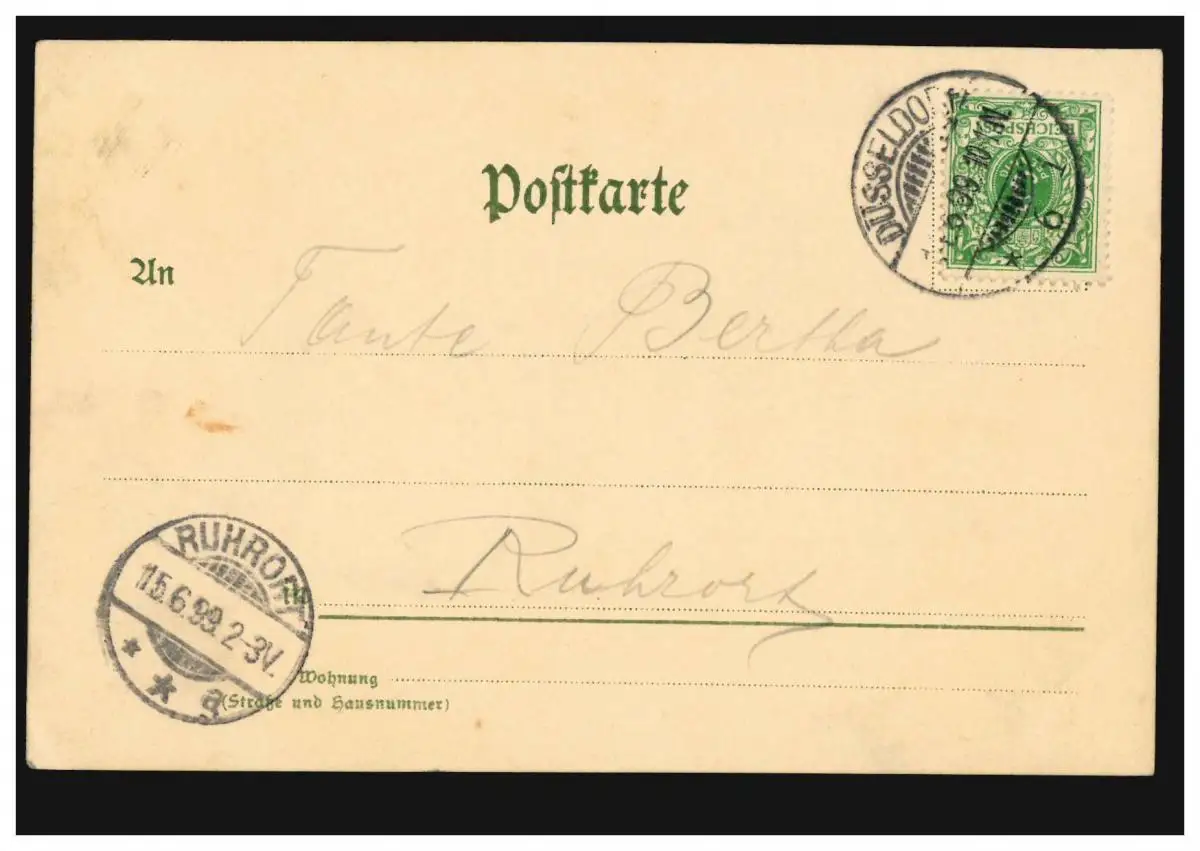 Postkarte
An Tante Bertha
Ruhrort
in
Wohnung
(Straße und Hausnummer)
DÜSSELDORF
REICHSPOST
RUHRORT
15.6.99. 2-3V.
* * a